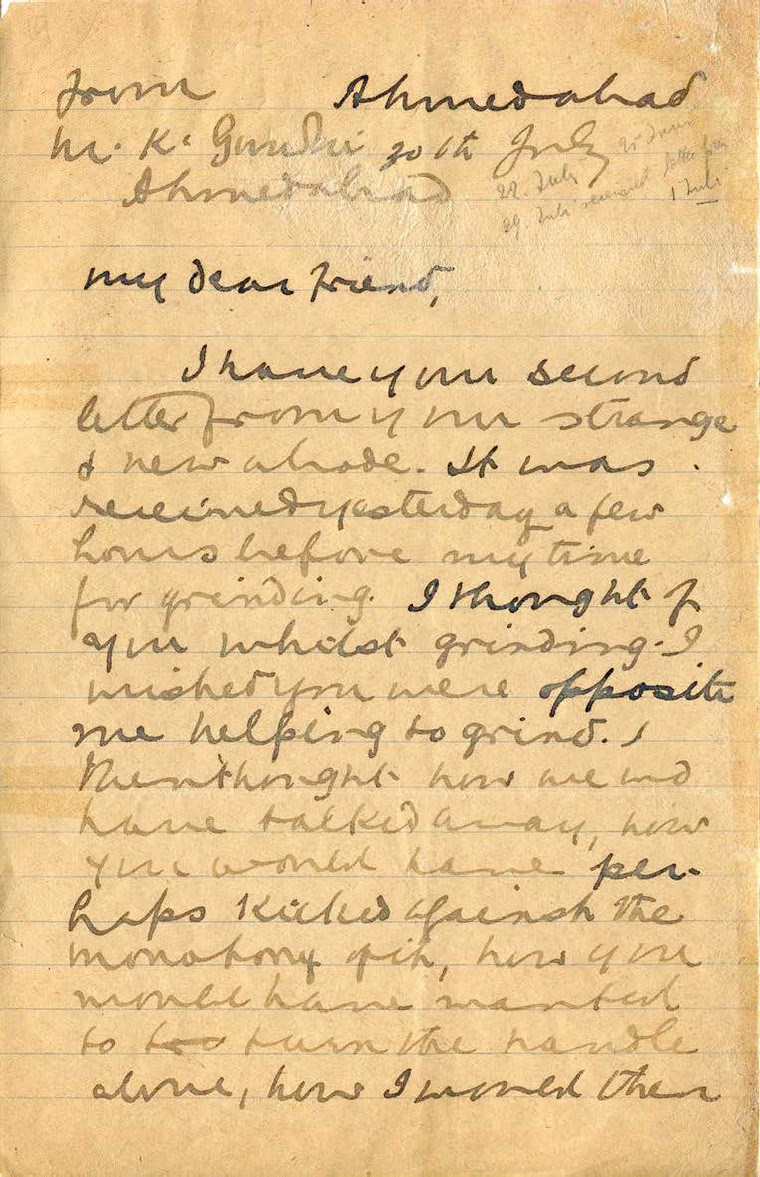 From Ahmedabad
M. K. Gandhi 30th July
Ahmedabad
22. July
29. July received letter from
1 July
My dear friend,
I have your second
letter from your strange
& new abode. It was
received yesterday a few
hours before my time
for grinding. I thought of
you whilst grinding. I
wished you were opposite
me helping to grind. I
then thought how we wod
have talked away, how
you would have per-
haps kicked against the
monotony of it, how you
would have wanted
to too turn the handle
alone, how I would then